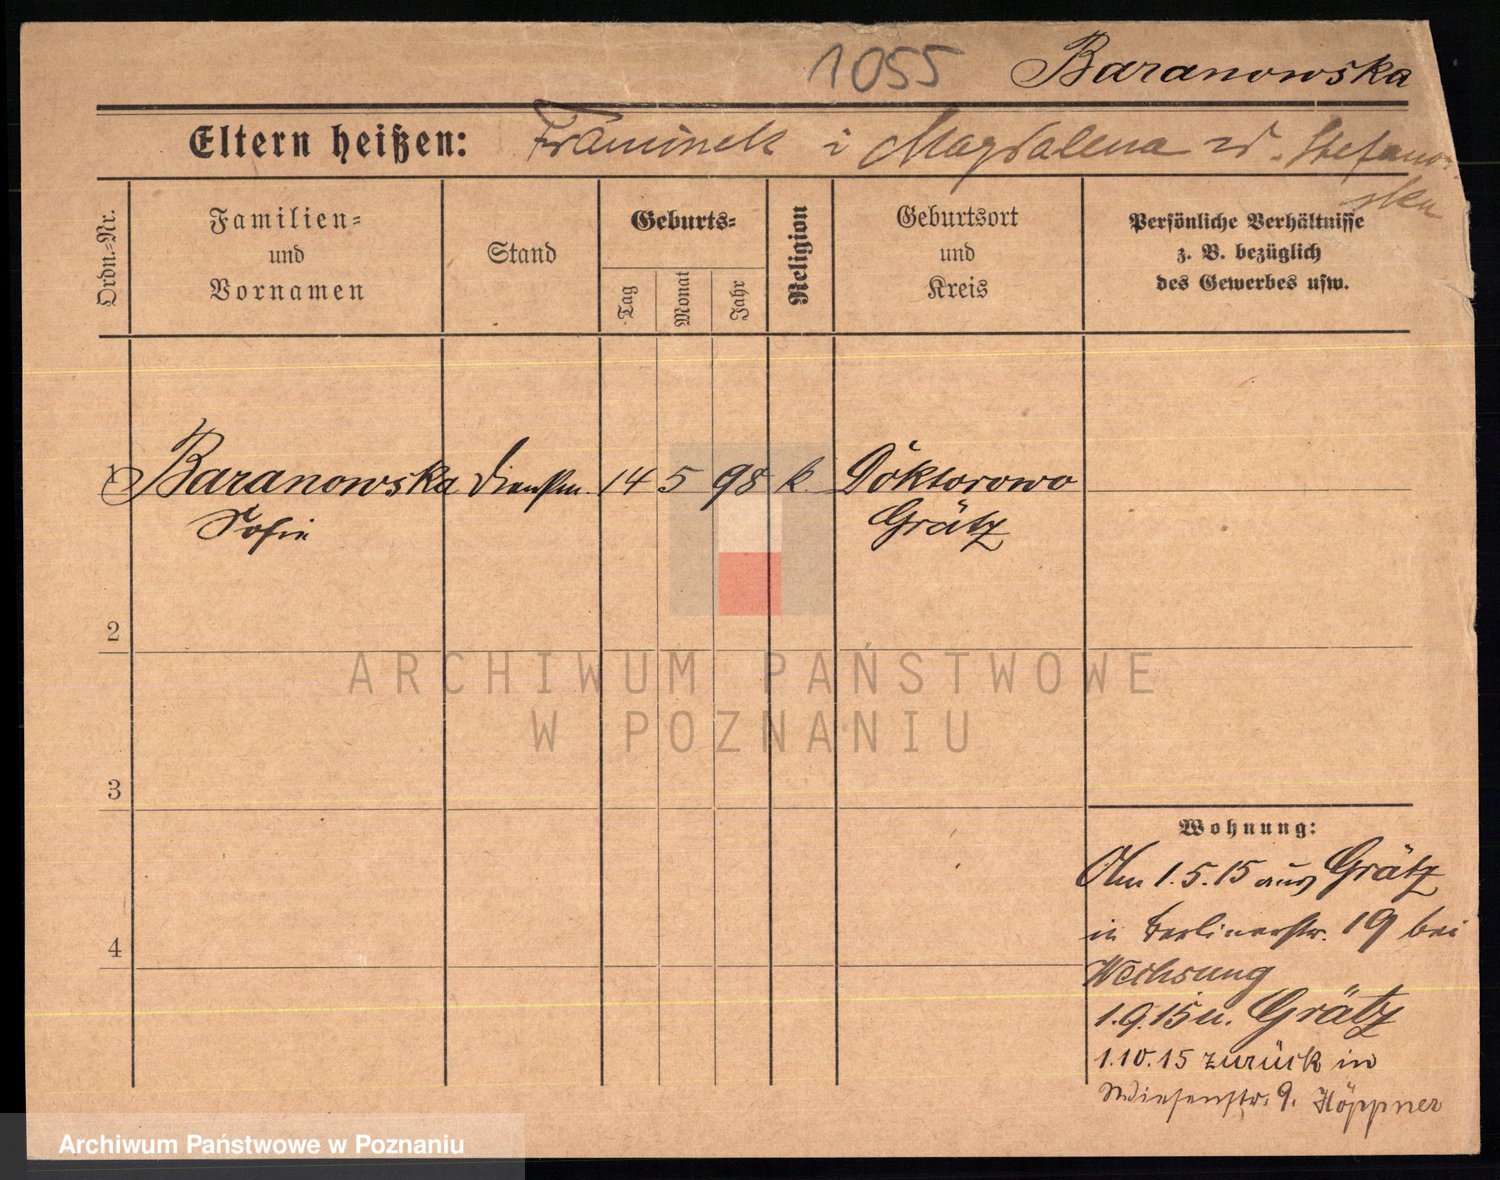 1055 Baranowska
Eltern heißen: Franciszek i Magdalena z d. Stefanow-
ska
Ordn.-Nr.
Familien-
und
Vornamen
Stand
Geburts-
Tag
Monat
Jahr
Religion
Geburtsort
und
Kreis
Persönliche Verhältnisse
z. B. bezüglich
des Gewerbes usw.
1 Baranowska Dienstm. 14 5 98 k. Doktorowo
Sofie Grätz
2
3
4
Wohnung:
Am 1.5.15 aus Grätz
in Berlinerstr. 19 bei
1.9.15 n. Grätz
1.10.15 zurück in
Wiesenstr. 9. Höppner
ARCHIWUM PAŃSTWOWE
W POZNANIU
Archiwum Państwowe w Poznaniu